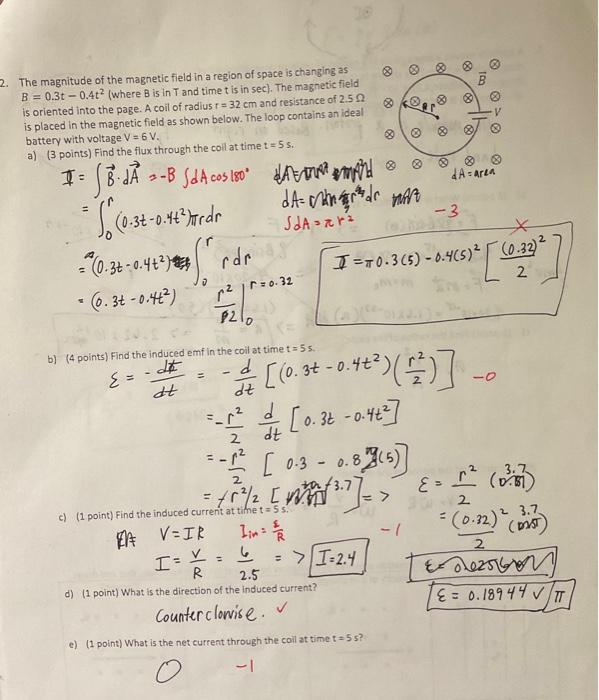 2. The magnitude of the magnetic field in a region of space is changing as
B = 0.3t − 0.4t² (where B is in T and time t is in sec). The magnetic field
is oriented into the page. A coil of radius r = 32 cm and resistance of 2.5 Ω
is placed in the magnetic field as shown below. The loop contains an ideal
battery with voltage V = 6 V.
B
r
V
dA = area
a) (3 points) Find the flux through the coil at time t = 5 s.
Φ = ∫ B · dA = -B ∫dA cos 180°
dA =
∫dA = πr²
-3
= ∫₀ʳ (0.3t - 0.4t²)πrdr
= (0.3t - 0.4t²) ∫₀ʳ rdr
= (0.3t - 0.4t²) r²/2 |₀ r = 0.32
Φ = π 0.3(5) - 0.4(5)² [(0.32)²/2]
b) (4 points) Find the induced emf in the coil at time t = 5 s.
ε = -dΦ/dt = -d/dt [(0.3t - 0.4t²)(r²/2)] -0
= -r²/2 d/dt [0.3t - 0.4t²]
= -r²/2 [0.3 - 0.8(5)]
= +r²/2 [3.7] = >
ε = r²/2 (3.7)
= (0.32)²/2 (3.7)
ε = 0.18944 V π
c) (1 point) Find the induced current at time t = 5 s.
V = IR
I in = ε/R
-1
I = V/R = 6/2.5 = > I = 2.4
d) (1 point) What is the direction of the induced current?
Counterclowise. ✓
e) (1 point) What is the net current through the coil at time t = 5 s?
0 -1